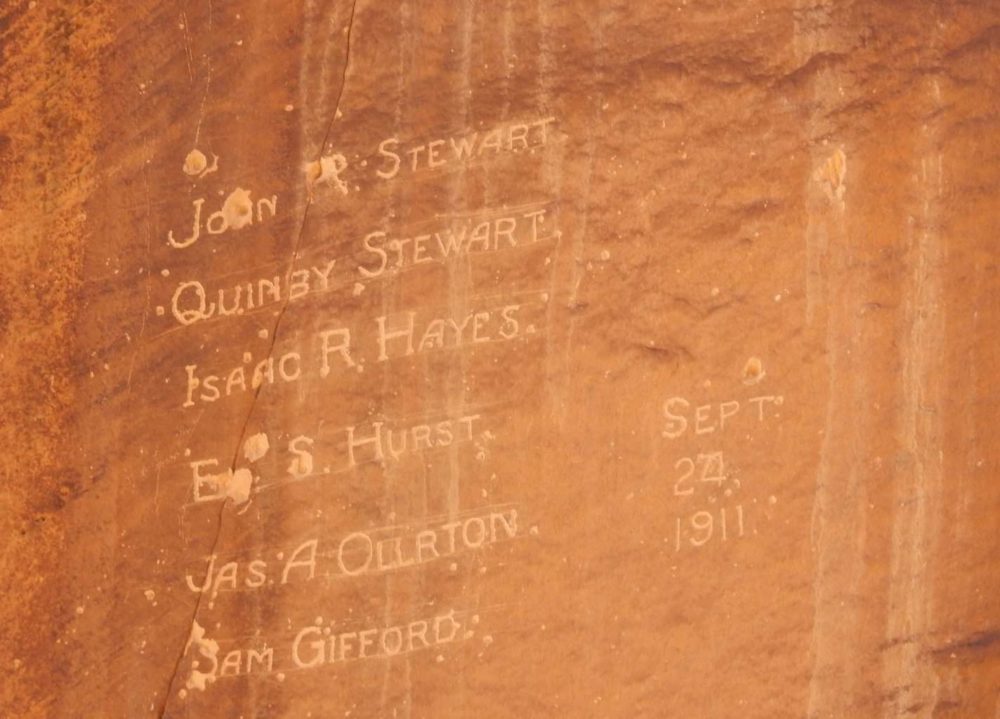 John R. Stewart
Quinby Stewart.
Isaac R. Hayes.
S. Hurst.
Jas. A. Ollrton.
Sam Gifford.
Sept.
24.
1911.